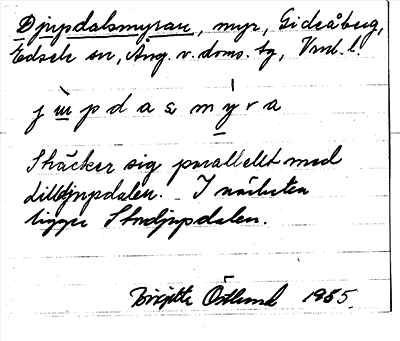 Djupdalsmyran, myr, Gideåberg,
Edsele sn, Ång. v. doms. tg, Vrml. l.
j u p d a s m y r a
Sträcker sig parallellt med
Lilldjupdalen. I närheten
ligger Stordjupdalen.
Birgitta Östlund 1955.